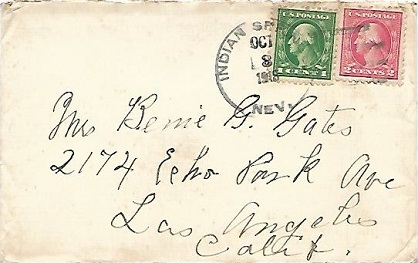 INDIAN SP
OCT
8
191
NEV.
U.S. POSTAGE
1 CENT 1
U.S. POSTAGE
2 CENTS 2
Mrs Bernie G. Gates
2174 Echo Park Ave
Los Angeles
Calif.